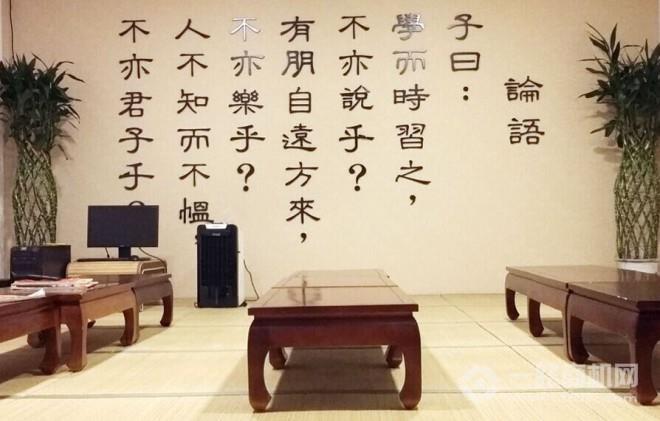 論語
子曰：
學而時習之，
不亦說乎？
有朋自遠方來，
不亦樂乎？
人不知而不慍
不亦君子乎？
商机网